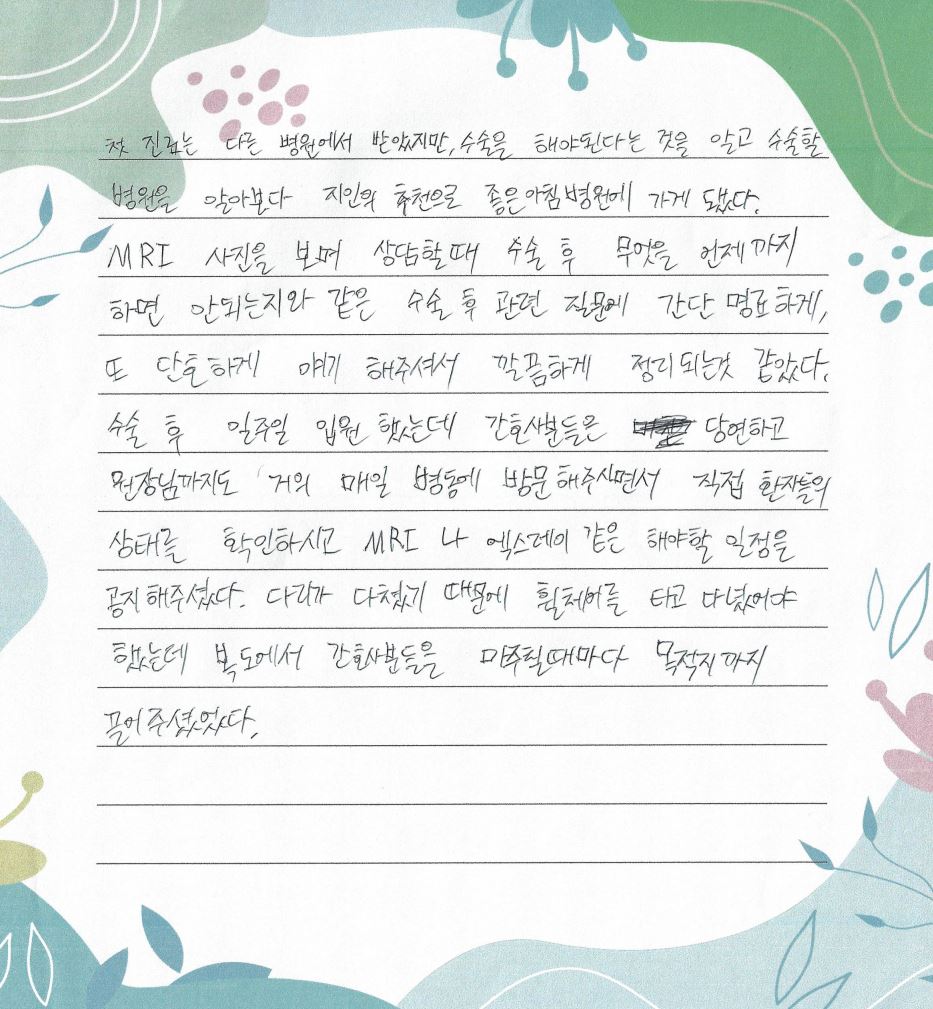 첫 진료는 다른 병원에서 받았지만, 수술을 해야된다는 것을 알고 수술할
병원을 알아보다 지인의 추천으로 좋은아침병원에 가게 됐다.
MRI 사진을 보며 상담할때 수술 후 무엇을 언제까지
하면 안되는지와 같은 수술 후 관련 질문에 간단 명료하게,
또 단호하게 얘기 해주셔서 깔끔하게 정리되는것 같았다.
수술 후 일주일 입원 했는데 간호사분들은 당연하고
원장님까지도 거의 매일 병동에 방문해주시면서 직접 환자들의
상태를 확인하시고 MRI 나 엑스레이 같은 해야할 일정을
공지해주셨다. 다리가 다쳤기 때문에 휠체어를 타고 다녔어야
했는데 복도에서 간호사분들을 마주칠때마다 목적지까지
끌어주셨었다.